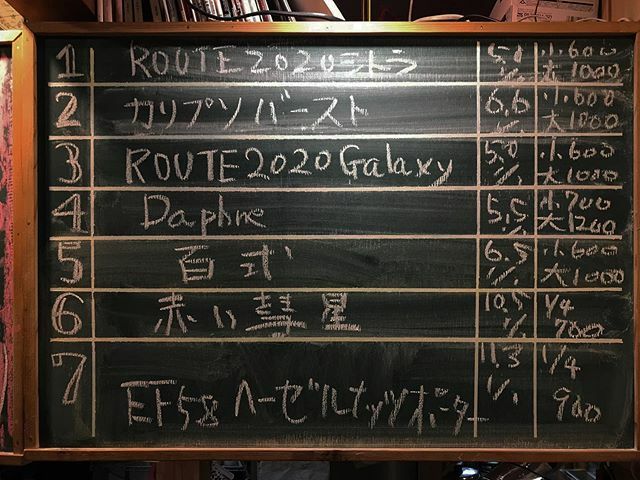 1 ROUTE2020シトラ 5.0 % 小600 大1000
2 カリプソバースト 6.6 % 小600 大1000
3 ROUTE2020Galaxy 5.0 % 小600 大1000
4 Daphne 5.5 % 小700 大1200
5 百式 6.5 % 小600 大1000
6 赤い彗星 10.5 % 1/4 700
7 EF58 ヘーゼルナッツポーター 11.3 % 1/4 900